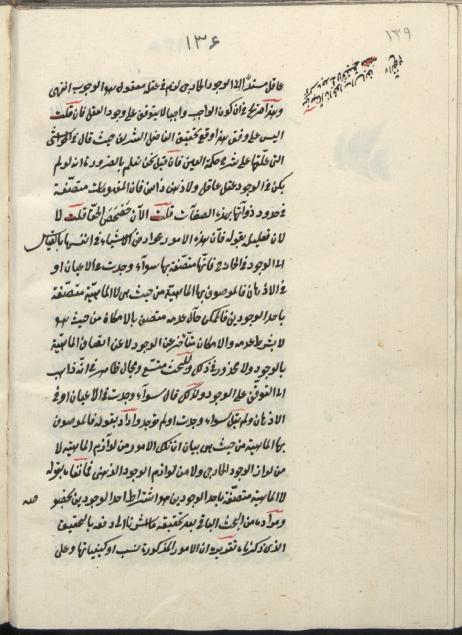 ١٣٩
١٣۶
عاقل مسندًا الى الوجود الخارجى لزم فى عقل معقول هو الوجوب انتهى
وهذا صريح فى ان كون الواجب واجبا لا يتوقف على وجود العقل فان قلت
اليس على وفق هذا وقع تحقيق الفاضل الشريف حيث قال فى الحواشى
التى علقها على شرح حكمة العين فان قيل نحن نعلم بالضرورة انه لو لم
يكن فى الوجود عقل عاقل ولا ذهن ذاهن فان المفهومات متصفة
فى حدود ذواتها بهذه الصفات قلت الآن حصحص الحق قلت لا
لان تعليله بقوله فان هذه الامور عوارض الاشياء فى انفسها بالقياس
الى الوجود فى الخارج فانها متصفة بها سواء وجدت فى الاعيان او
فى الاذهان فالموصوف بها الماهية من حيث هى لا الماهية متصفة
باحد الوجودين فالممكن حال عدمه متصف بالامكان من حيث هو
لا بشرط عدمه والامكان متأخر عن الوجود لا عن اتصاف الماهية
بالوجود ولا محذور فى ذلك وللبحث متسع ومجال ظاهر فى انه ذاهب
الى التوقف على الوجود ولذلك قال سواء وجدت فى الاعيان او فى
الاذهان ولم يقل سواء وجدت او لم توجد واراد بقوله فالموصوف
بها الماهية من حيث هى بيان ان تلك الامور من لوازم الماهية لا
من لوازم الوجود الخارجى ولا من لوازم الوجود الذهنى فما نفاه بقوله
لا الماهية متصفة باحد الوجودين هو اشتراط احد الوجودين بخصو
صه
ومراده من البحث الباقى بعد تحقيقه كما اشرنا الى دفعه بالتحقيق
الذى ذكرناه تقريره ان الامور المذكورة نسب او كيفياتها وعلى